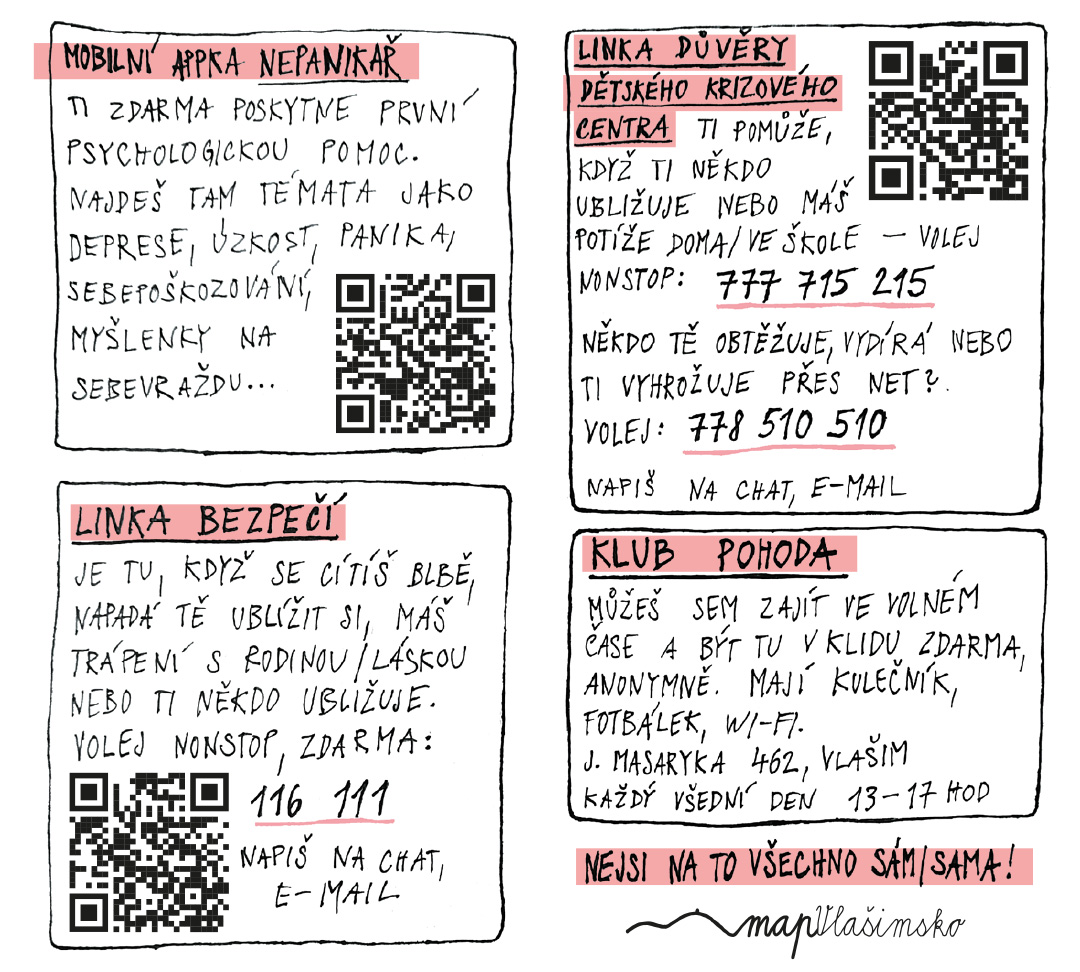 MOBILNÍ APPKA NEPANIKAŘ
TI ZDARMA POSKYTNE PRVNÍ
PSYCHOLOGICKOU POMOC.
NAJDEŠ TAM TÉMATA JAKO
DEPRESE, ÚZKOST, PANIKA,
SEBEPOŠKOZOVÁNÍ,
MYŠLENKY NA
SEBEVRAŽDU...
LINKA BEZPEČÍ
JE TU, KDYŽ SE CÍTÍŠ BLBĚ,
NAPADÁ TĚ UBLÍŽIT SI, MÁŠ
TRÁPENÍ S RODINOU/LÁSKOU
NEBO TI NĚKDO UBLIŽUJE.
VOLEJ NONSTOP, ZDARMA:
116 111
NAPIŠ NA CHAT,
E-MAIL
LINKA DŮVĚRY
DĚTSKÉHO KRIZOVÉHO
CENTRA TI POMŮŽE,
KDYŽ TI NĚKDO
UBLIŽUJE NEBO MÁŠ
POTÍŽE DOMA/VE ŠKOLE – VOLEJ
NONSTOP: 777 715 215
NĚKDO TĚ OBTĚŽUJE, VYDÍRÁ NEBO
TI VYHROŽUJE PŘES NET?
VOLEJ: 778 510 510
NAPIŠ NA CHAT, E-MAIL
KLUB POHODA
MŮŽEŠ SEM ZAJÍT VE VOLNÉM
ČASE A BÝT TU V KLIDU ZDARMA,
ANONYMNĚ. MAJÍ KULEČNÍK,
FOTBÁLEK, WI-FI.
J. MASARYKA 462, VLAŠIM
KAŽDÝ VŠEDNÍ DEN 13-17 HOD
NEJSI NA TO VŠECHNO SÁM/SAMA!
mapVlašimsko